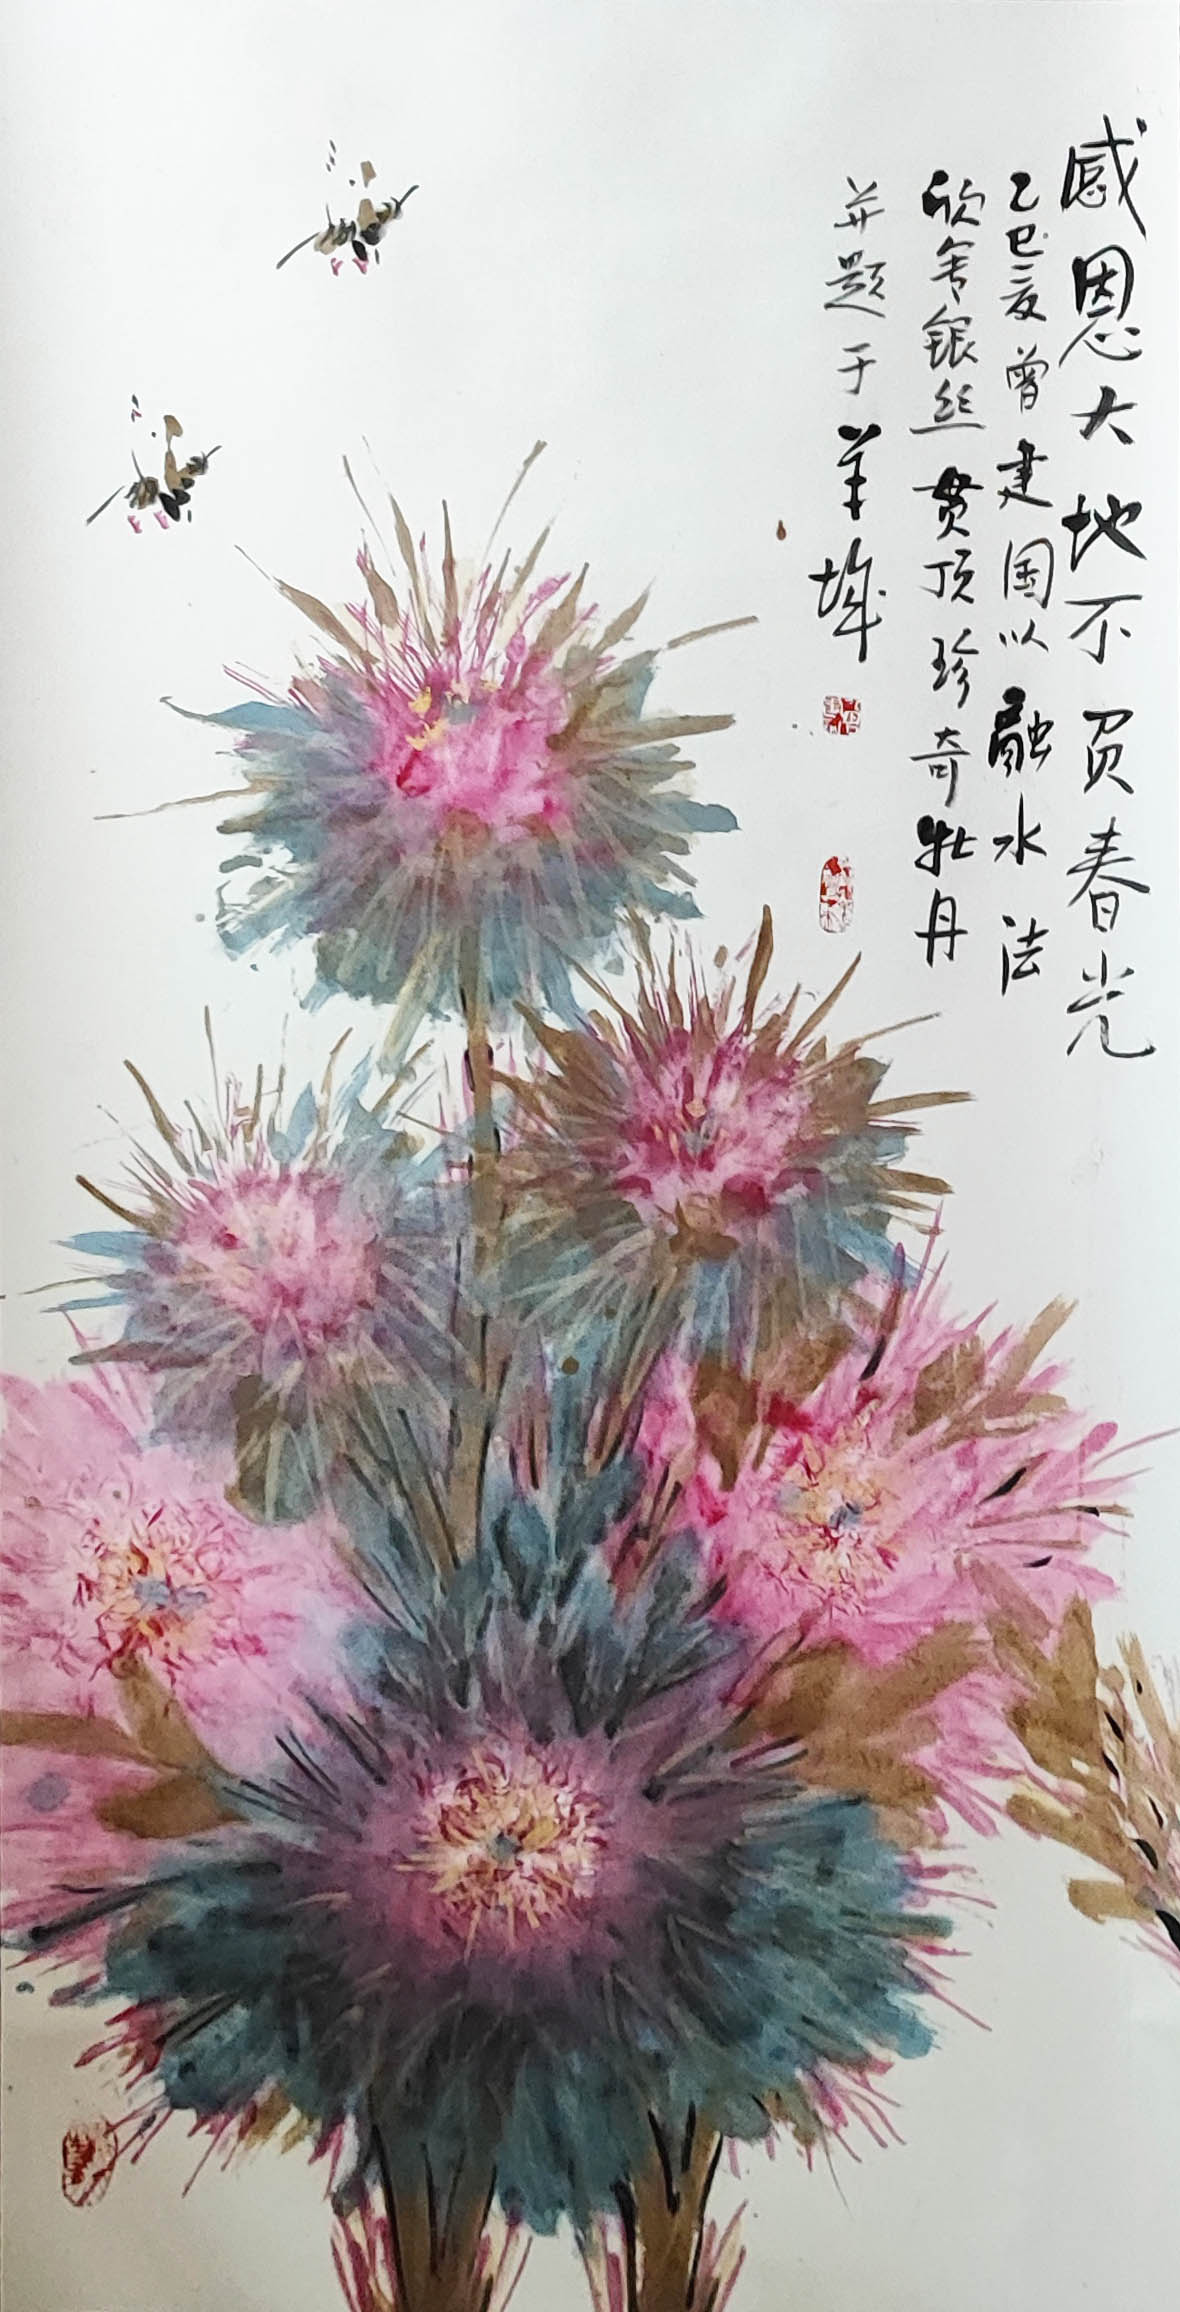 感恩大地不负春光
乙巳夏曾建国以融水法
欣写银丝贯顶珍奇牡丹
并题于羊城